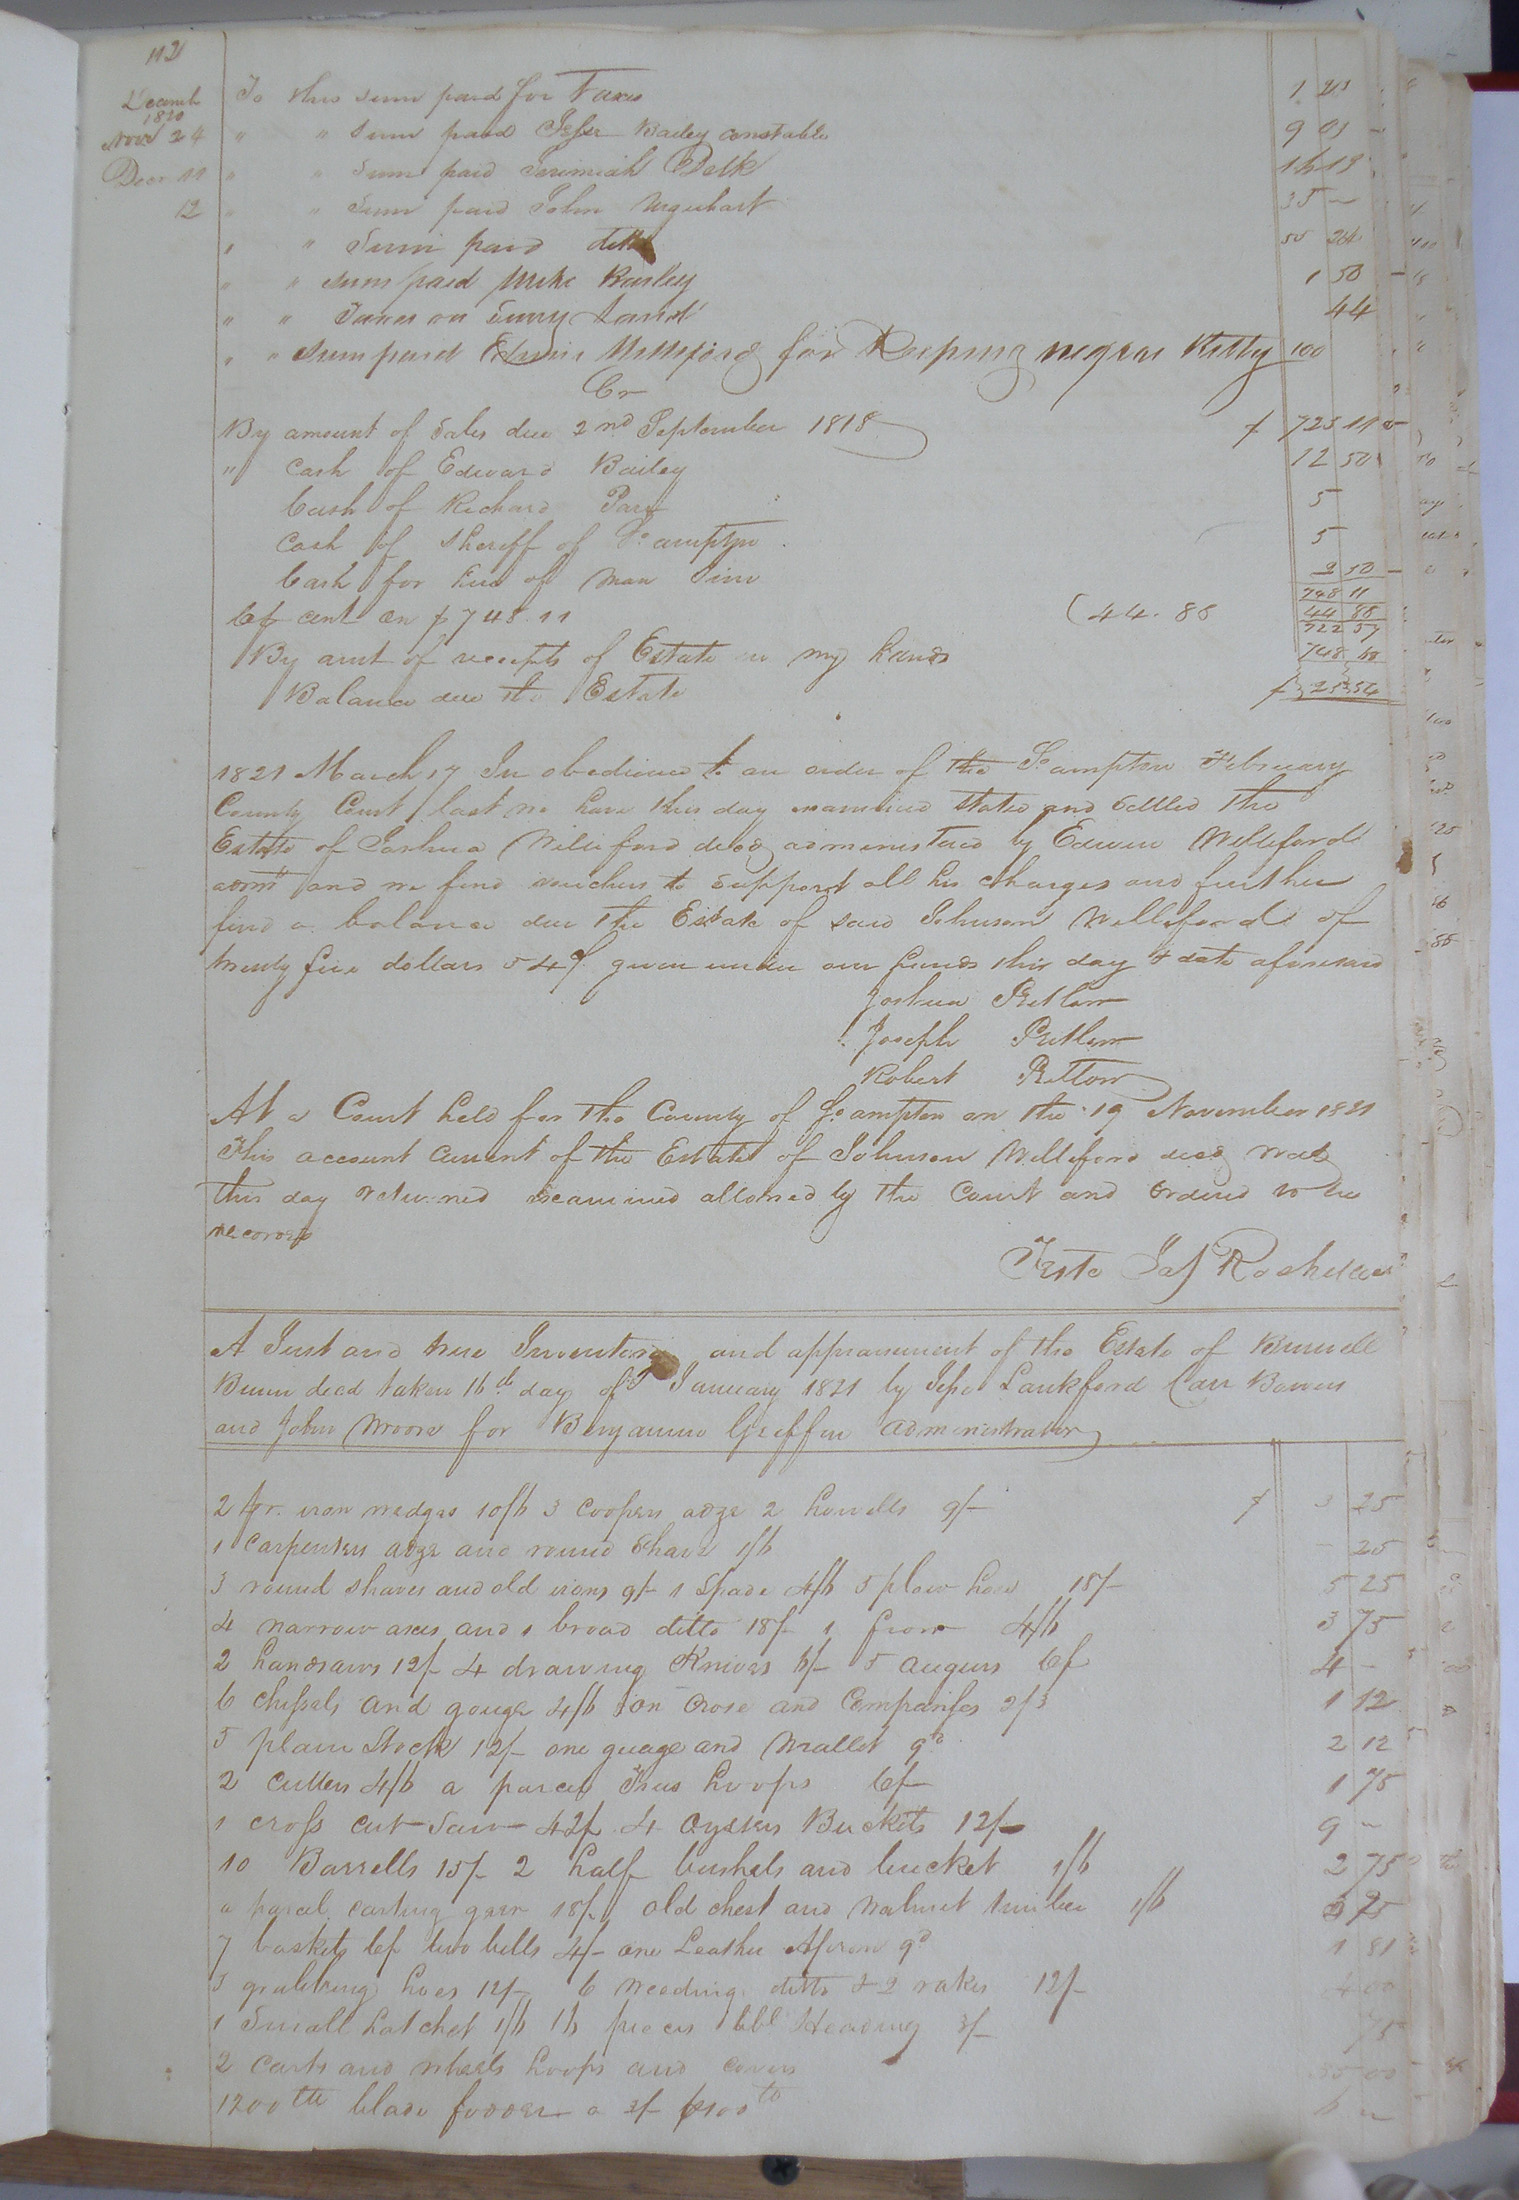 112
Decemb 1820 To this sum paid for Taxes 1 25
Novr 24 " " Sum paid Jesse Bailey constable 9 03
Decr 11 " " Sum paid Jerimiah Delk 16 19
12 " " Sum paid John Urquhart 35 ~
" " Sum paid ditto 50 26
" " sum paid Mike Bailey 1 50
" " Taxes on Surry Land 44
" " Sum paid Edwin Williford for Keeping negroe Kitty 100
Cr
By amount of Sales due 2nd September 1818 $ 723 11
" Cash of Edward Bailey 12 50
Cash of Richard 5
Cash of Sheriff of So ampton 5
Cash for hire of man Sim 2 50
748 11
6 p cent on $748.11 (44.88 44 88
722 57
By amt of receipts of Estate in my hands 748
Balance due the Estate $ 25 54
1821 March 17 In obedience to an order of the So ampton February
County Court last we have this day examined stated and settled the
Estate of Joshua Williford decd administered by Edwin Williford
admr and we find vouchers to support all his charges and further
find a balance due the Estate of said Johnson Williford of
twenty five dollars 54 given under our hands this day & date aforesaid
Joshua Pretlow
Joseph Pretlow
Robert Pretlow
At a Court held for the County of So ampton on the 19 November 1821
This account current of the Estate of Johnson Williford decd was
this day returned examined allowed by the Court and ordered to be
recorded
Teste Jas Rochelle
A Just and true Inventory and appraisement of the Estate of Burwell
Bunn decd taken 16th day of January 1821 by Jesse Lankford Carr Bowers
and John Moore for Benjamin Griffin administrator
2 pr. iron wedges 10/6 3 Coopers adze 2 howells 9/- $ 3 25
1 Carpenters adze and round Shave 1/6 - 25
3 round shaves and old irons 9/- 1 Spade 4/6 5 plow hoes 18/- 5 25
4 narrow axes and 1 broad ditto 18/- 1 frow 4/6 3 75
2 handsaws 12/- 4 drawing Knives 6/- 5 augurs 6/- 4 -
6 chissels and gouge 4/6 on Crose and Compasses 2/3 1 12
5 plain Stock 12/- one guage and Mallet 9d 2 12
2 cutters 4/6 a parcel Trus hoops 6/- 1 75
1 cross cut Saw 42/- 4 Oysters Buckets 12/- 9 ~
10 Barrells 15/- 2 half bushels and bucket 1/6 2 75
a parcel carting gear 18/- old chest and Walnut timber 1/6
7 baskets 6/- two bells 4/- one Leather Apron 9d 1 81
3 grubbing hoes 12/- 6 weeding ditto & 2 rakes 12/- 4 00
1 Small hatchet 1/6 16 pieces bbl Heading 3/- 75
2 Carts and wheels hoops and covers 35 00
1200 lb blade fodder a 3/- p 100 lb 6 ~